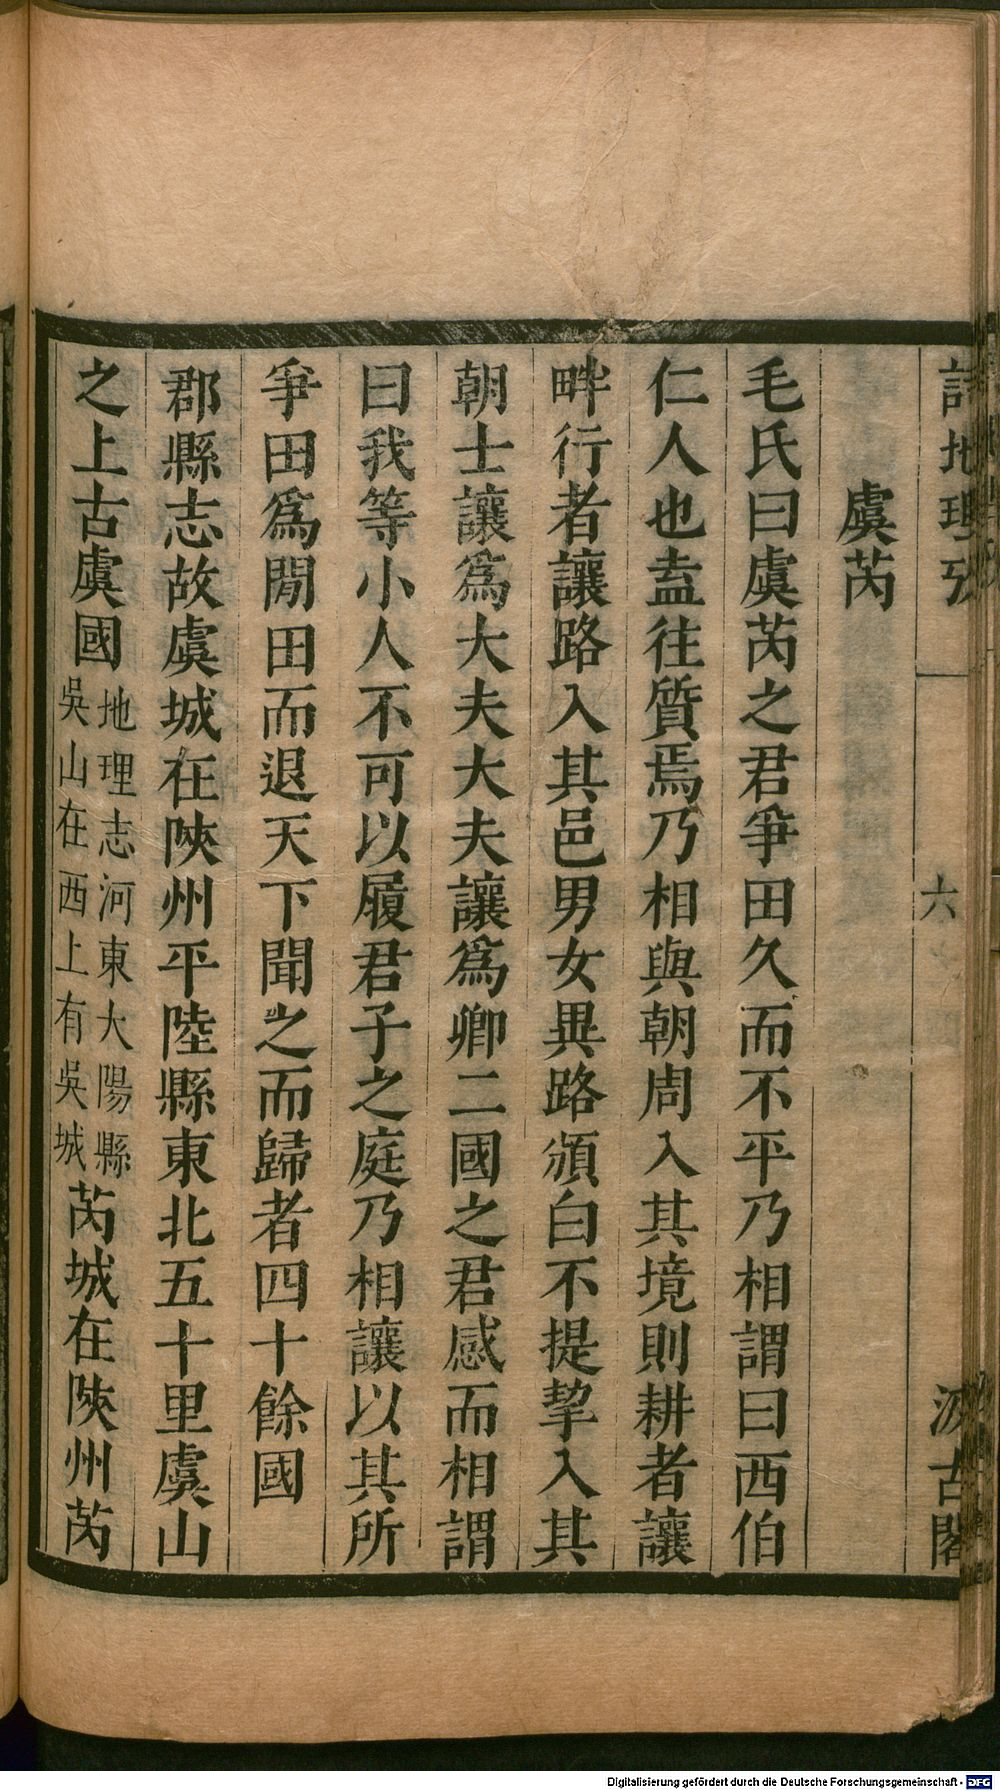 詩地理攷
六
汲古閣
虞芮
毛氏曰虞芮之君爭田久而不平乃相謂曰西伯
仁人也盍往質焉乃相與朝周入其境則耕者讓
畔行者讓路入其邑男女異路頒白不提挈入其
朝士讓爲大夫大夫讓爲卿二國之君感而相謂
曰我等小人不可以履君子之庭乃相讓以其所
爭田爲閒田而退天下聞之而歸者四十餘國
郡縣志故虞城在陝州平陸縣東北五十里虞山
之上古虞國地理志河東大陽縣吳山在西上有吳城芮城在陝州芮
Digitalisierung gefördert durch die Deutsche Forschungsgemeinschaft - DFG